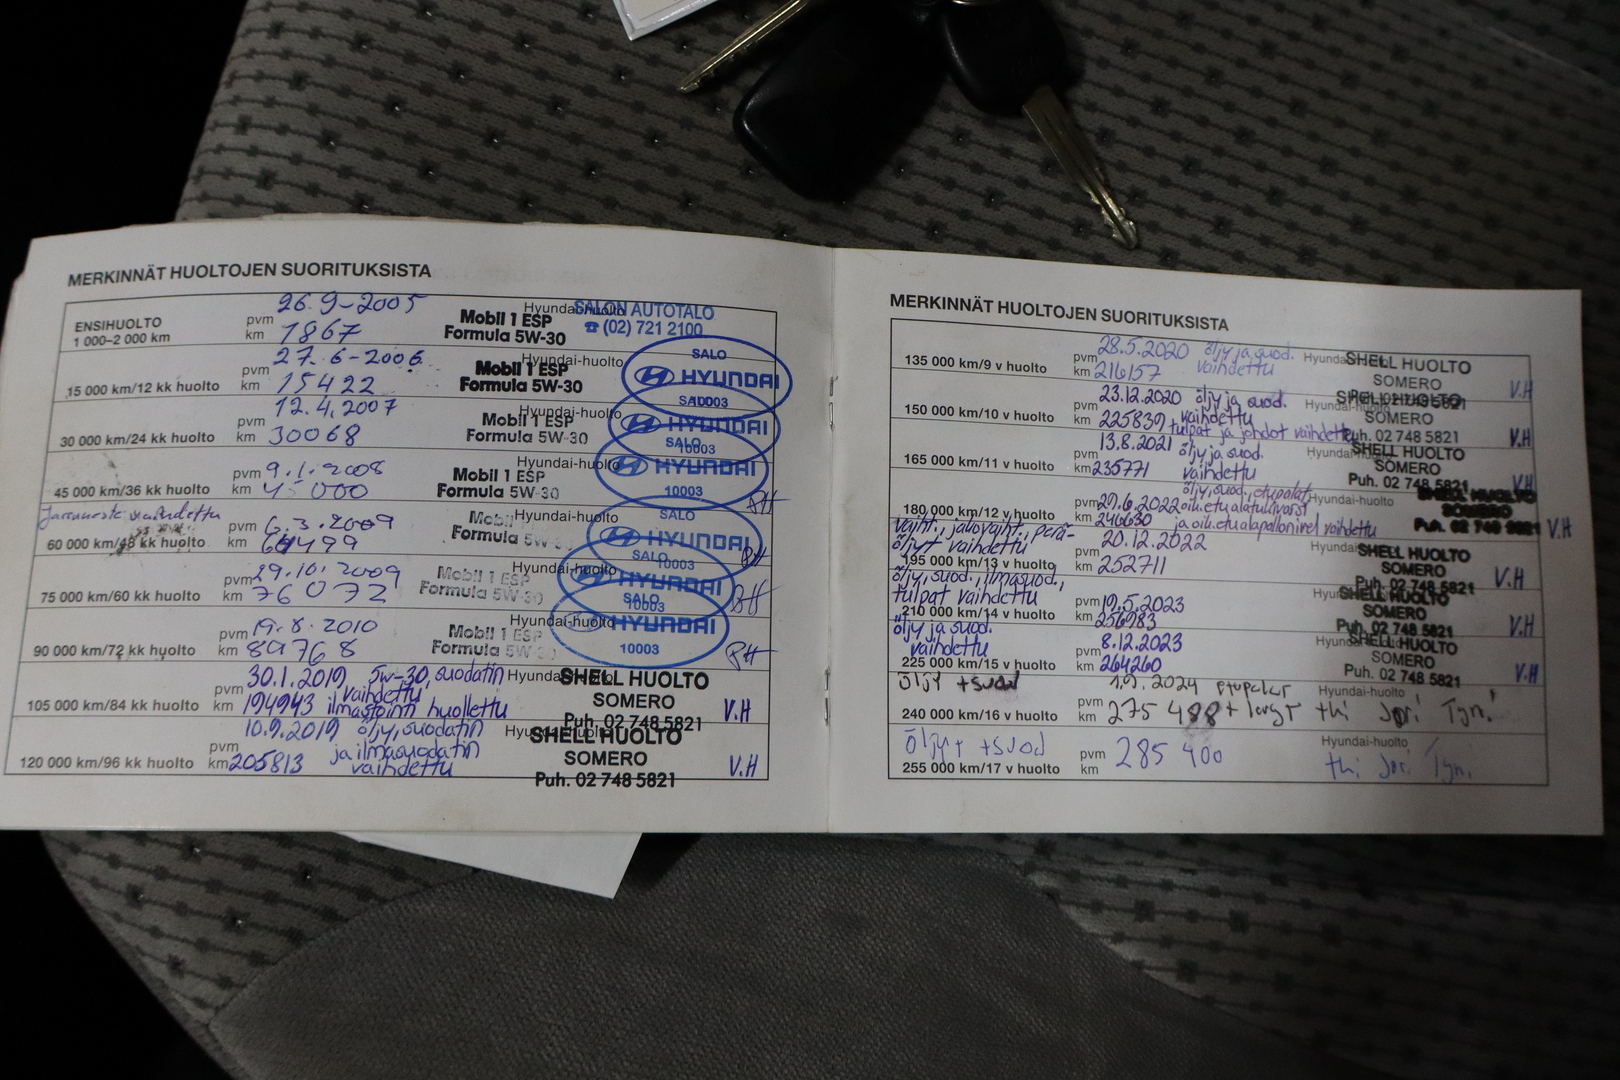 MERKINNÄT HUOLTOJEN SUORITUKSISTA
ENSIHUOLTO
1 000–2 000 km
pvm 26.9-2005
km 1867
Mobil 1 ESP
Formula 5W-30
Hyundai-huolto
SALON AUTOTALO
☎ (02) 721 2100
15 000 km/12 kk huolto
pvm 27.6-2006
km 15422
Mobil 1 ESP
Formula 5W-30
Hyundai-huolto
SALO
HYUNDAI
10003
30 000 km/24 kk huolto
pvm 12.4.2007
km 30068
Mobil 1 ESP
Formula 5W-30
Hyundai-huolto
SALO
HYUNDAI
10003
45 000 km/36 kk huolto
pvm 9.1.2008
km 45000
Mobil 1 ESP
Formula 5W-30
Hyundai-huolto
SALO
HYUNDAI
10003
Jarruneste vaihdettu
60 000 km/48 kk huolto
pvm 6.3.2009
km
Mobil 1 ESP
Formula 5W-30
Hyundai-huolto
SALO
HYUNDAI
10003
75 000 km/60 kk huolto
pvm 29.10.2009
km 76072
Mobil 1 ESP
Formula 5W-30
Hyundai-huolto
SALO
HYUNDAI
10003
90 000 km/72 kk huolto
pvm 19.8.2010
km 89768
Mobil 1 ESP
Formula 5W-30
Hyundai-huolto
SALO
HYUNDAI
10003
105 000 km/84 kk huolto
pvm 30.1.2019 5w-30, suodatin
vaihdettu
km 194943 ilmastointi huollettu
Hyundai-huolto
SHELL HUOLTO
SOMERO
Puh. 02 748 5821
V.H
120 000 km/96 kk huolto
pvm 10.9.2019 öljy, suodatin
ja ilmasuodatin
km 205813 vaihdettu
Hyundai-huolto
SHELL HUOLTO
SOMERO
Puh. 02 748 5821
V.H
MERKINNÄT HUOLTOJEN SUORITUKSISTA
135 000 km/9 v huolto
pvm 28.5.2020 öljy ja suod.
km 216157 vaihdettu
Hyundai-huolto
SHELL HUOLTO
SOMERO
Puh. 02 748 5821
V.H
150 000 km/10 v huolto
pvm 23.12.2020 öljy ja suod.
km 225839 vaihdettu
tulpat ja johdot vaihdettu
Hyundai-huolto
SHELL HUOLTO
SOMERO
Puh. 02 748 5821
V.H
165 000 km/11 v huolto
pvm 13.8.2021 öljy ja suod.
km 235771 vaihdettu
Hyundai-huolto
SHELL HUOLTO
SOMERO
Puh. 02 748 5821
V.H
180 000 km/12 v huolto
öljy, suod., etupalat,
pvm 29.6.2022 oik. etualatukivarsi
km 246630 ja oik. etualapallonivel vaihdettu
Hyundai-huolto
SHELL HUOLTO
SOMERO
Puh. 02 748 5821
V.H
vaiht., jakovaiht., perä-
öljyt vaihdettu
195 000 km/13 v huolto
pvm 20.12.2022
km 252711
Hyundai-huolto
SHELL HUOLTO
SOMERO
Puh. 02 748 5821
V.H
öljy, suod., ilmasuod.,
tulpat vaihdettu
210 000 km/14 v huolto
pvm 19.5.2023
km 256983
Hyundai-huolto
SHELL HUOLTO
SOMERO
Puh. 02 748 5821
V.H
öljy ja suod.
vaihdettu
225 000 km/15 v huolto
pvm 8.12.2023
km 264260
Hyundai-huolto
SHELL HUOLTO
SOMERO
Puh. 02 748 5821
V.H
öljy + suod
240 000 km/16 v huolto
pvm 1.9.2024
km 275 488
Hyundai-huolto
öljyt + suod
255 000 km/17 v huolto
pvm
km 285 400
Hyundai-huolto